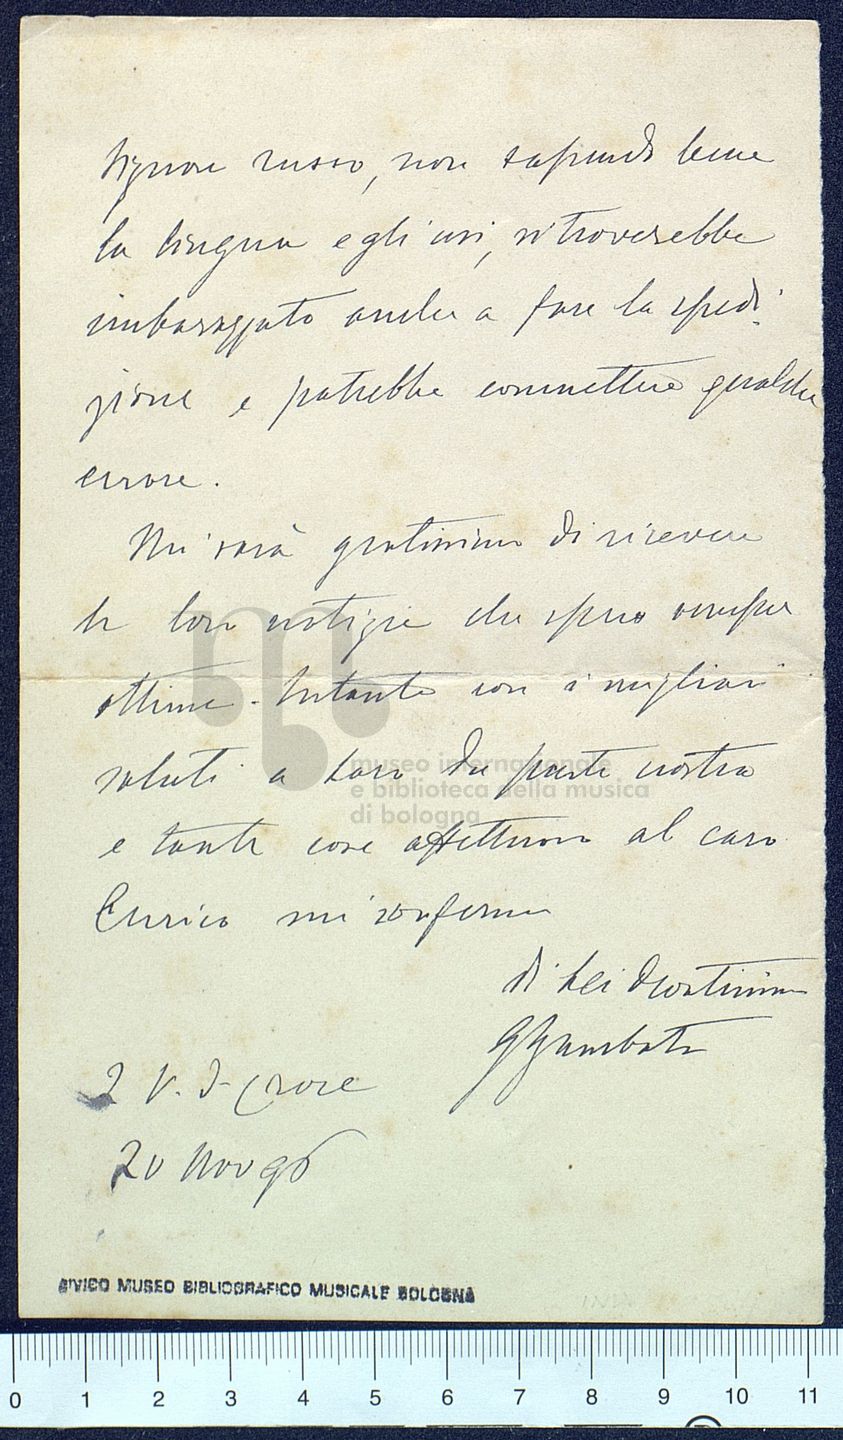 signore russo, non sapendo bene
la lingua e gli usi, si troverebbe
imbarazzato anche a fare la spedi-
zione e potrebbe commettere qualche
errore.
Mi sarà gratissimo di ricevere
le loro notizie che spero sempre
ottime. Intanto con i migliori
saluti a Loro da parte nostra
e tante cose affettuose al caro
Enrico mi confermo
di Lei devotissimo
GSgambati
2 V. d. Croce
20 Nov 96
museo internazionale
e biblioteca della musica
di bologna
CIVICO MUSEO BIBLIOGRAFICO MUSICALE BOLOGNA
0 1 2 3 4 5 6 7 8 9 10 11